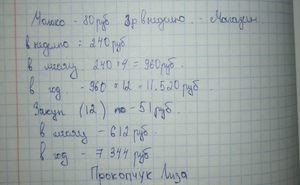 Молоко - 80 руб 3 р в неделю. - Магазин
в неделю = 240 руб
в месяц 240·4 = 960 руб.
в год. - 960 · 12 = 11.520 руб.
Закуп (12) по - 51 руб.
в месяц - 612 руб.
в год - 7 344 руб
Прокопчук Лиза